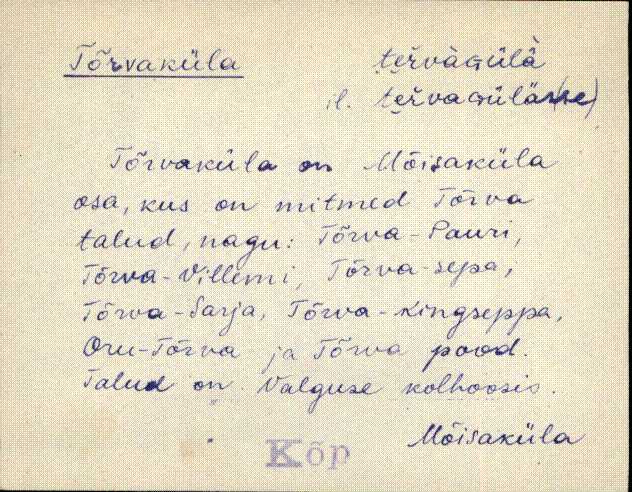 Tõrvaküla
tervaGülä
il. tervaGülässe
Tõrvaküla on Mõisaküla
osa, kus on mitmed Tõrva
talud, nagu: Tõrva-Pauri,
Tõrva-Villemi, Tõrva-sepa,
Tõrva-Sarja, Tõrva-Kingseppa,
Oru-Tõrva ja Tõrva pood.
Talud on Valguse kolhoosis.
Mõisaküla
Kõp